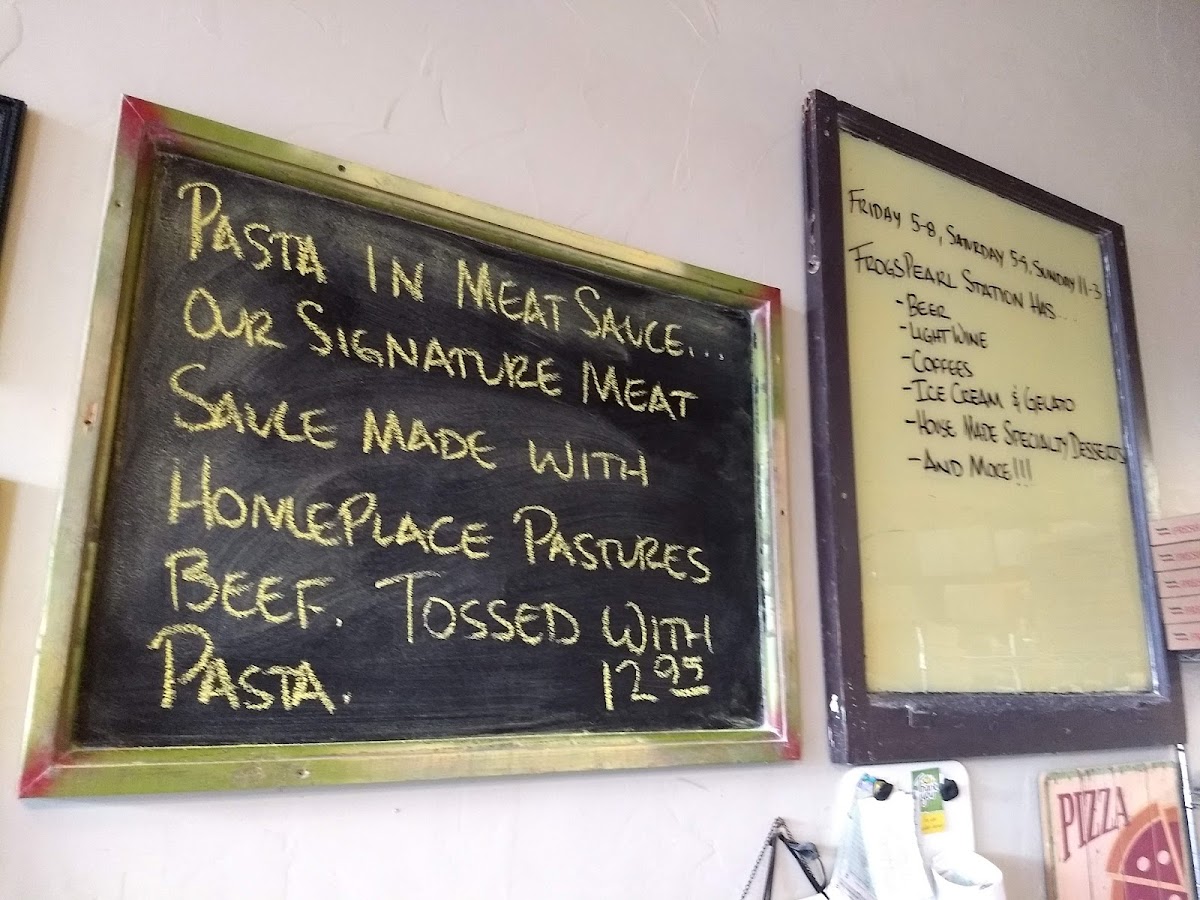 PASTA IN MEAT SAUCE...
OUR SIGNATURE MEAT
SAUCE MADE WITH
HOMEPLACE PASTURES
BEEF. TOSSED WITH
PASTA. 12.95
FRIDAY 5-8, SATURDAY 5-9, SUNDAY 11-3
FROGSPEARL STATION HAS...
-BEER
-LIGHT WINE
-COFFEES
-ICE CREAM & GELATO
-HOUSE MADE SPECIALTY DESSERTS
-AND MORE!!!
PIZZA